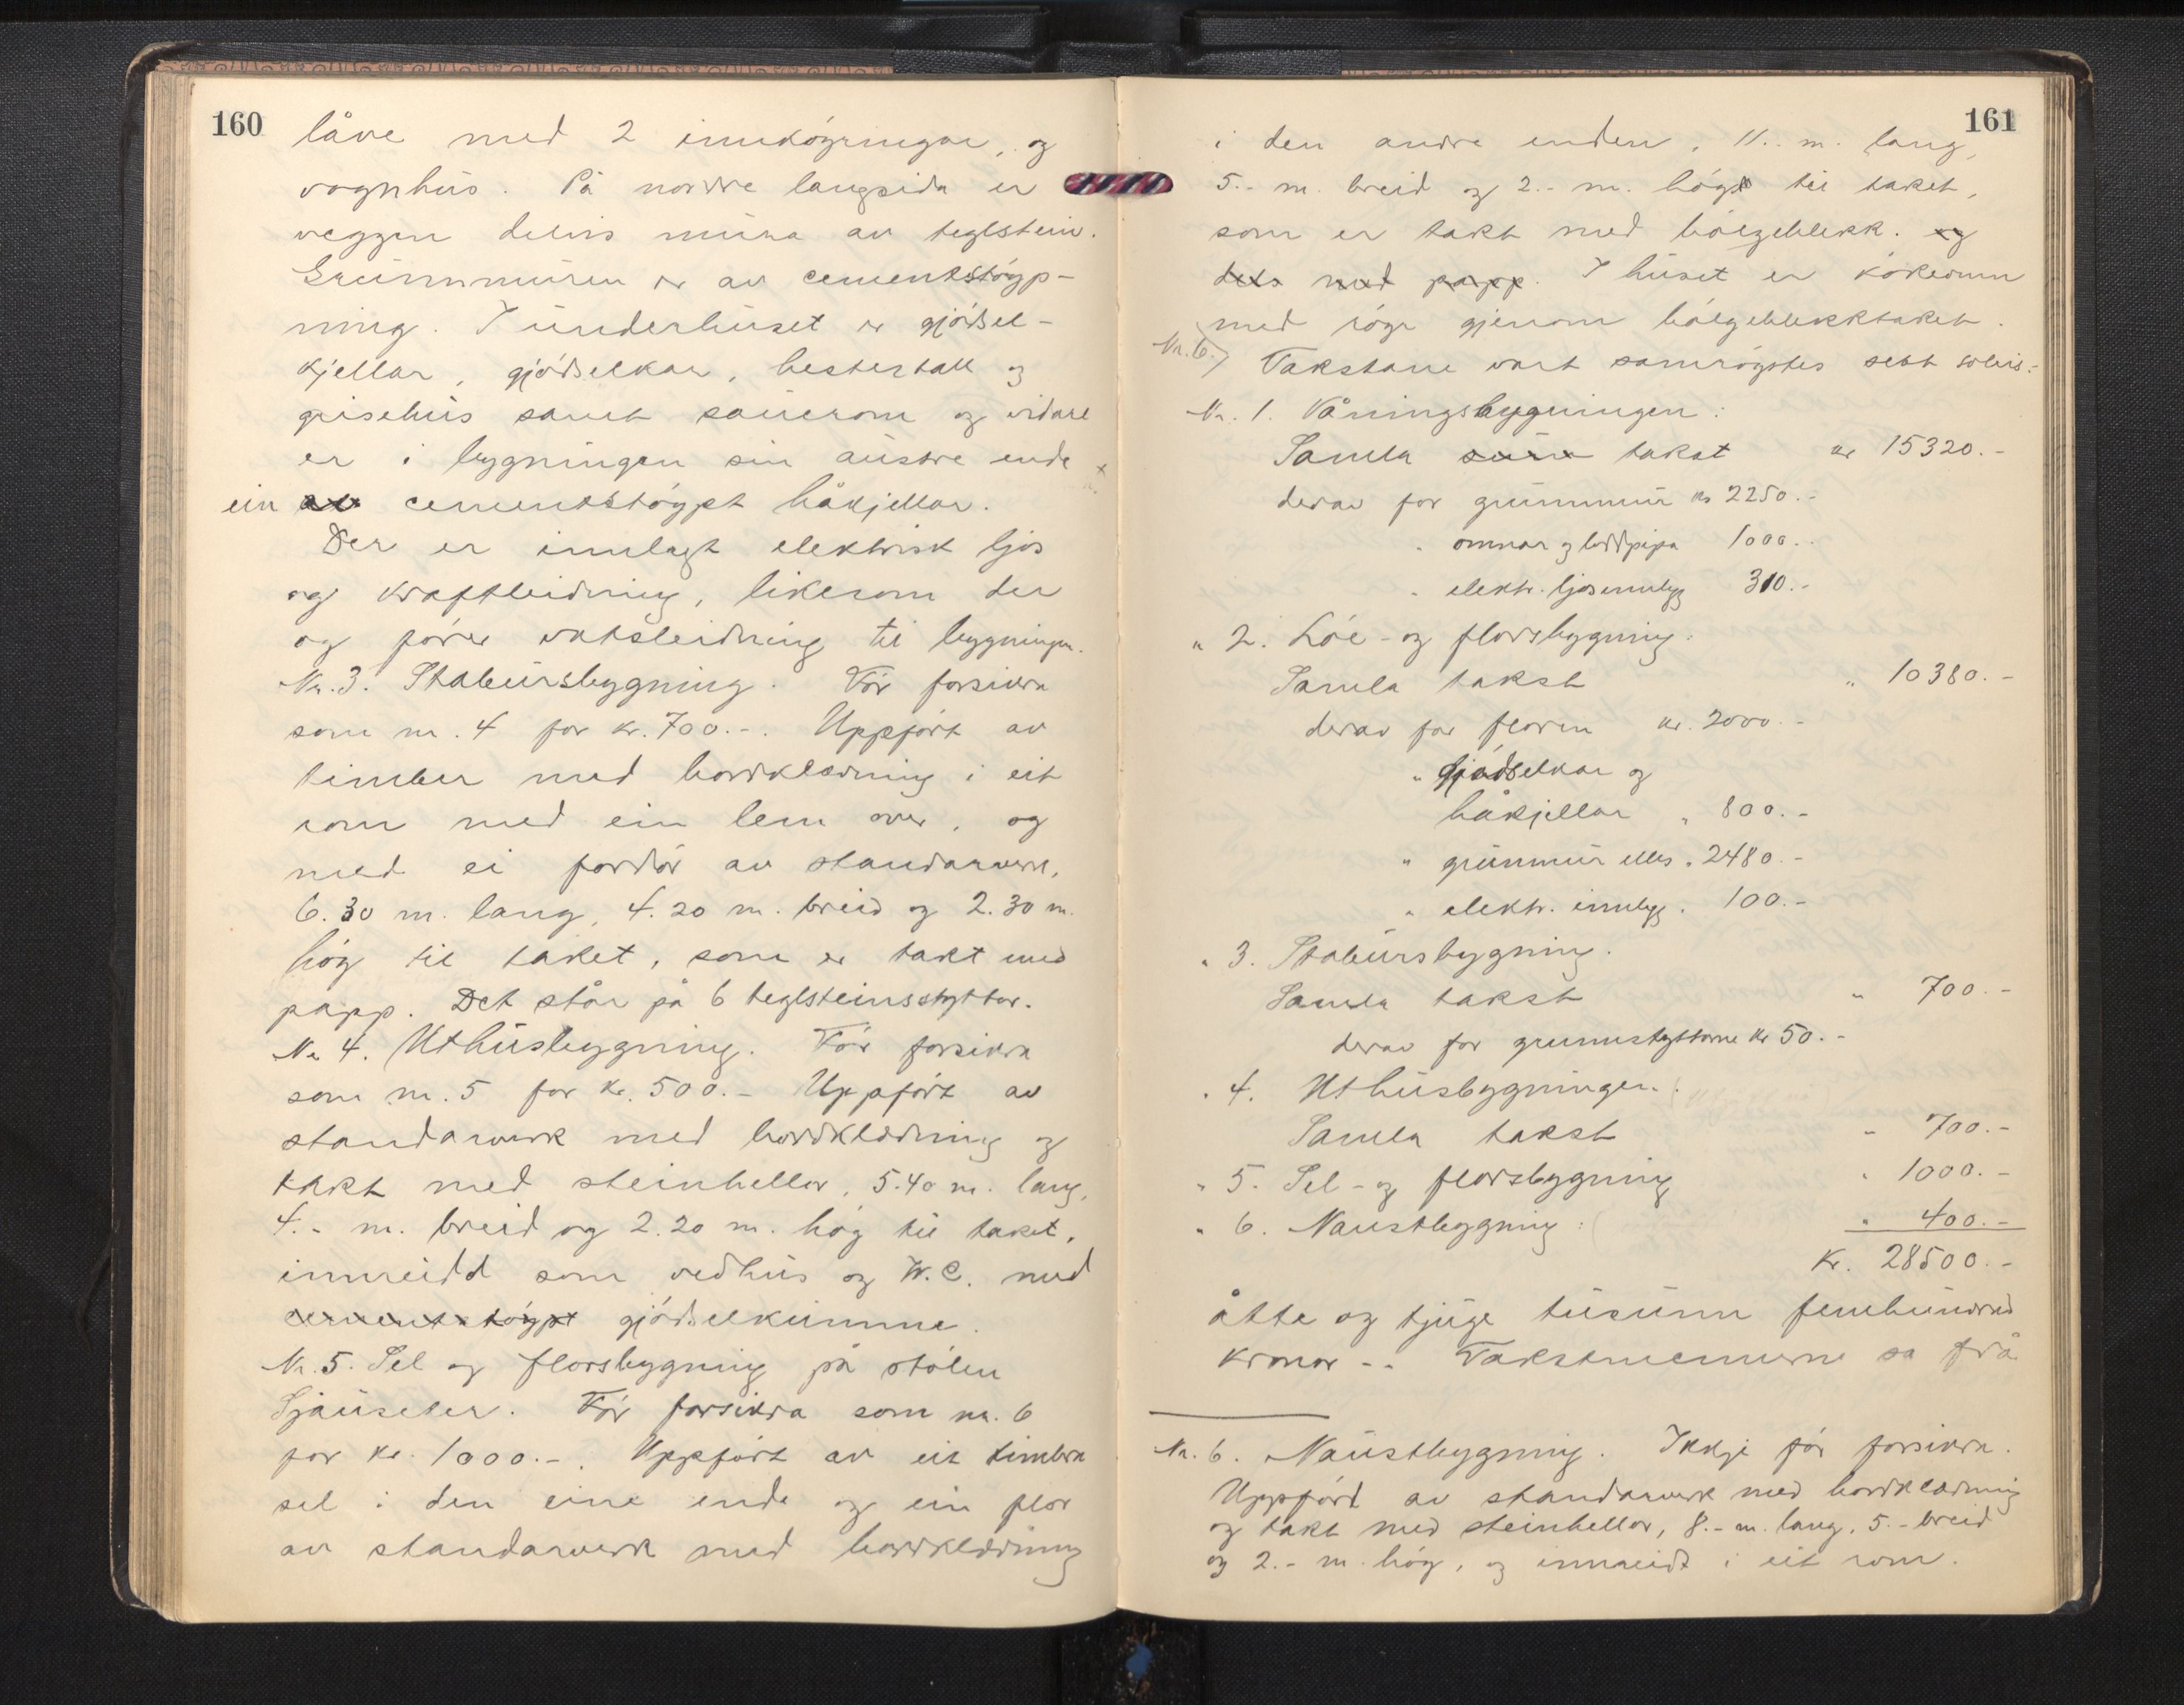 160
låve med 2 innkøyringar, og
vognhus. På nordre langsida er
veggen delvis mura av teglstein.
Grunnmuren er av cementstøyp-
ning. I underhuset er gjødsel-
kjellar, gjødselkar, hestestall og
grisehus samt sauerom og vidare
er i bygningen sin austre ende
ein av cementstøypt håkjellar.
Der er innlagt elektrisk ljos
og kraftleidning, likesom der
og fører vatsleidning til bygningen.
Nr. 3. Stabursbygning. Før forsikra
som nr. 4 for kr. 700.-. Uppført av
timber med bordklædning i eit
rom med ein lem over, og
med ei fordør av standarverk,
6.30 m. lang, 4.20 m. breid og 2.30 m.
høg til taket, som er takt med
papp. Det står på 6 teglsteinsstyttor.
Nr 4. Uthusbygning. Før forsikra
som nr. 5 for kr. 500.- Uppført av
standarverk med bordklædning og
takt med steinhellor, 5.40 m. lang,
4.- m. breid og 2.20 m. høg til taket,
innreidd som vedhus og W.C. med
cementstøypt gjødselkumme.
Nr. 5. Sel og florsbygning på stølen
Sjauseter. Før forsikra som nr. 6
for kr. 1000.-. Uppført av eit timbra
sel i den eine ende og ein flor
av standarverk med bordklædning
161
i den andre enden, 11.- m. lang,
5.- m. breid og 2.- m. høg til taket,
som er takt med bølgeblekk. og
dels med papp. I huset er kokerom
med røyr gjenom bølgeblekktaket.
Nr. 6.) Takstane vart samrøystes sett solvis:
Nr. 1. Våningsbygningen:
Samla sum takst kr 15320.-
derav for grunnmur kr 2250.-
" omnar og bordpipa 1000.-
" elektr. ljosinnlegg 310.-
" 2. Løe- og florsbygning:
Samla takst " 10380.-
derav for floren kr. 2000.-
" gjødselkar og
håkjellar " 800.-
" grunnmur elles " 2480.-
" elektr. innlegg " 100.-
" 3. Stabursbygning.
Samla takst " 700.-
derav for grunnstyttorne kr 50.-
" 4. Uthusbygningen:
Samla takst " 700.-
" 5. Sel- og florsbygning " 1000.-
" 6. Naustbygning: " 400.-
Kr. 28500.-
åtte og tjuge tusunn femhundrad
kronor -. Takstmennerne sa frå
Nr. 6. Naustbygning. Ikkje før forsikra.
Uppførd av standarverk med bordklædning
og takt med steinhellor, 8.- m. lang, 5.- breid
og 2.- m. høg, og innreidt i eit rom.